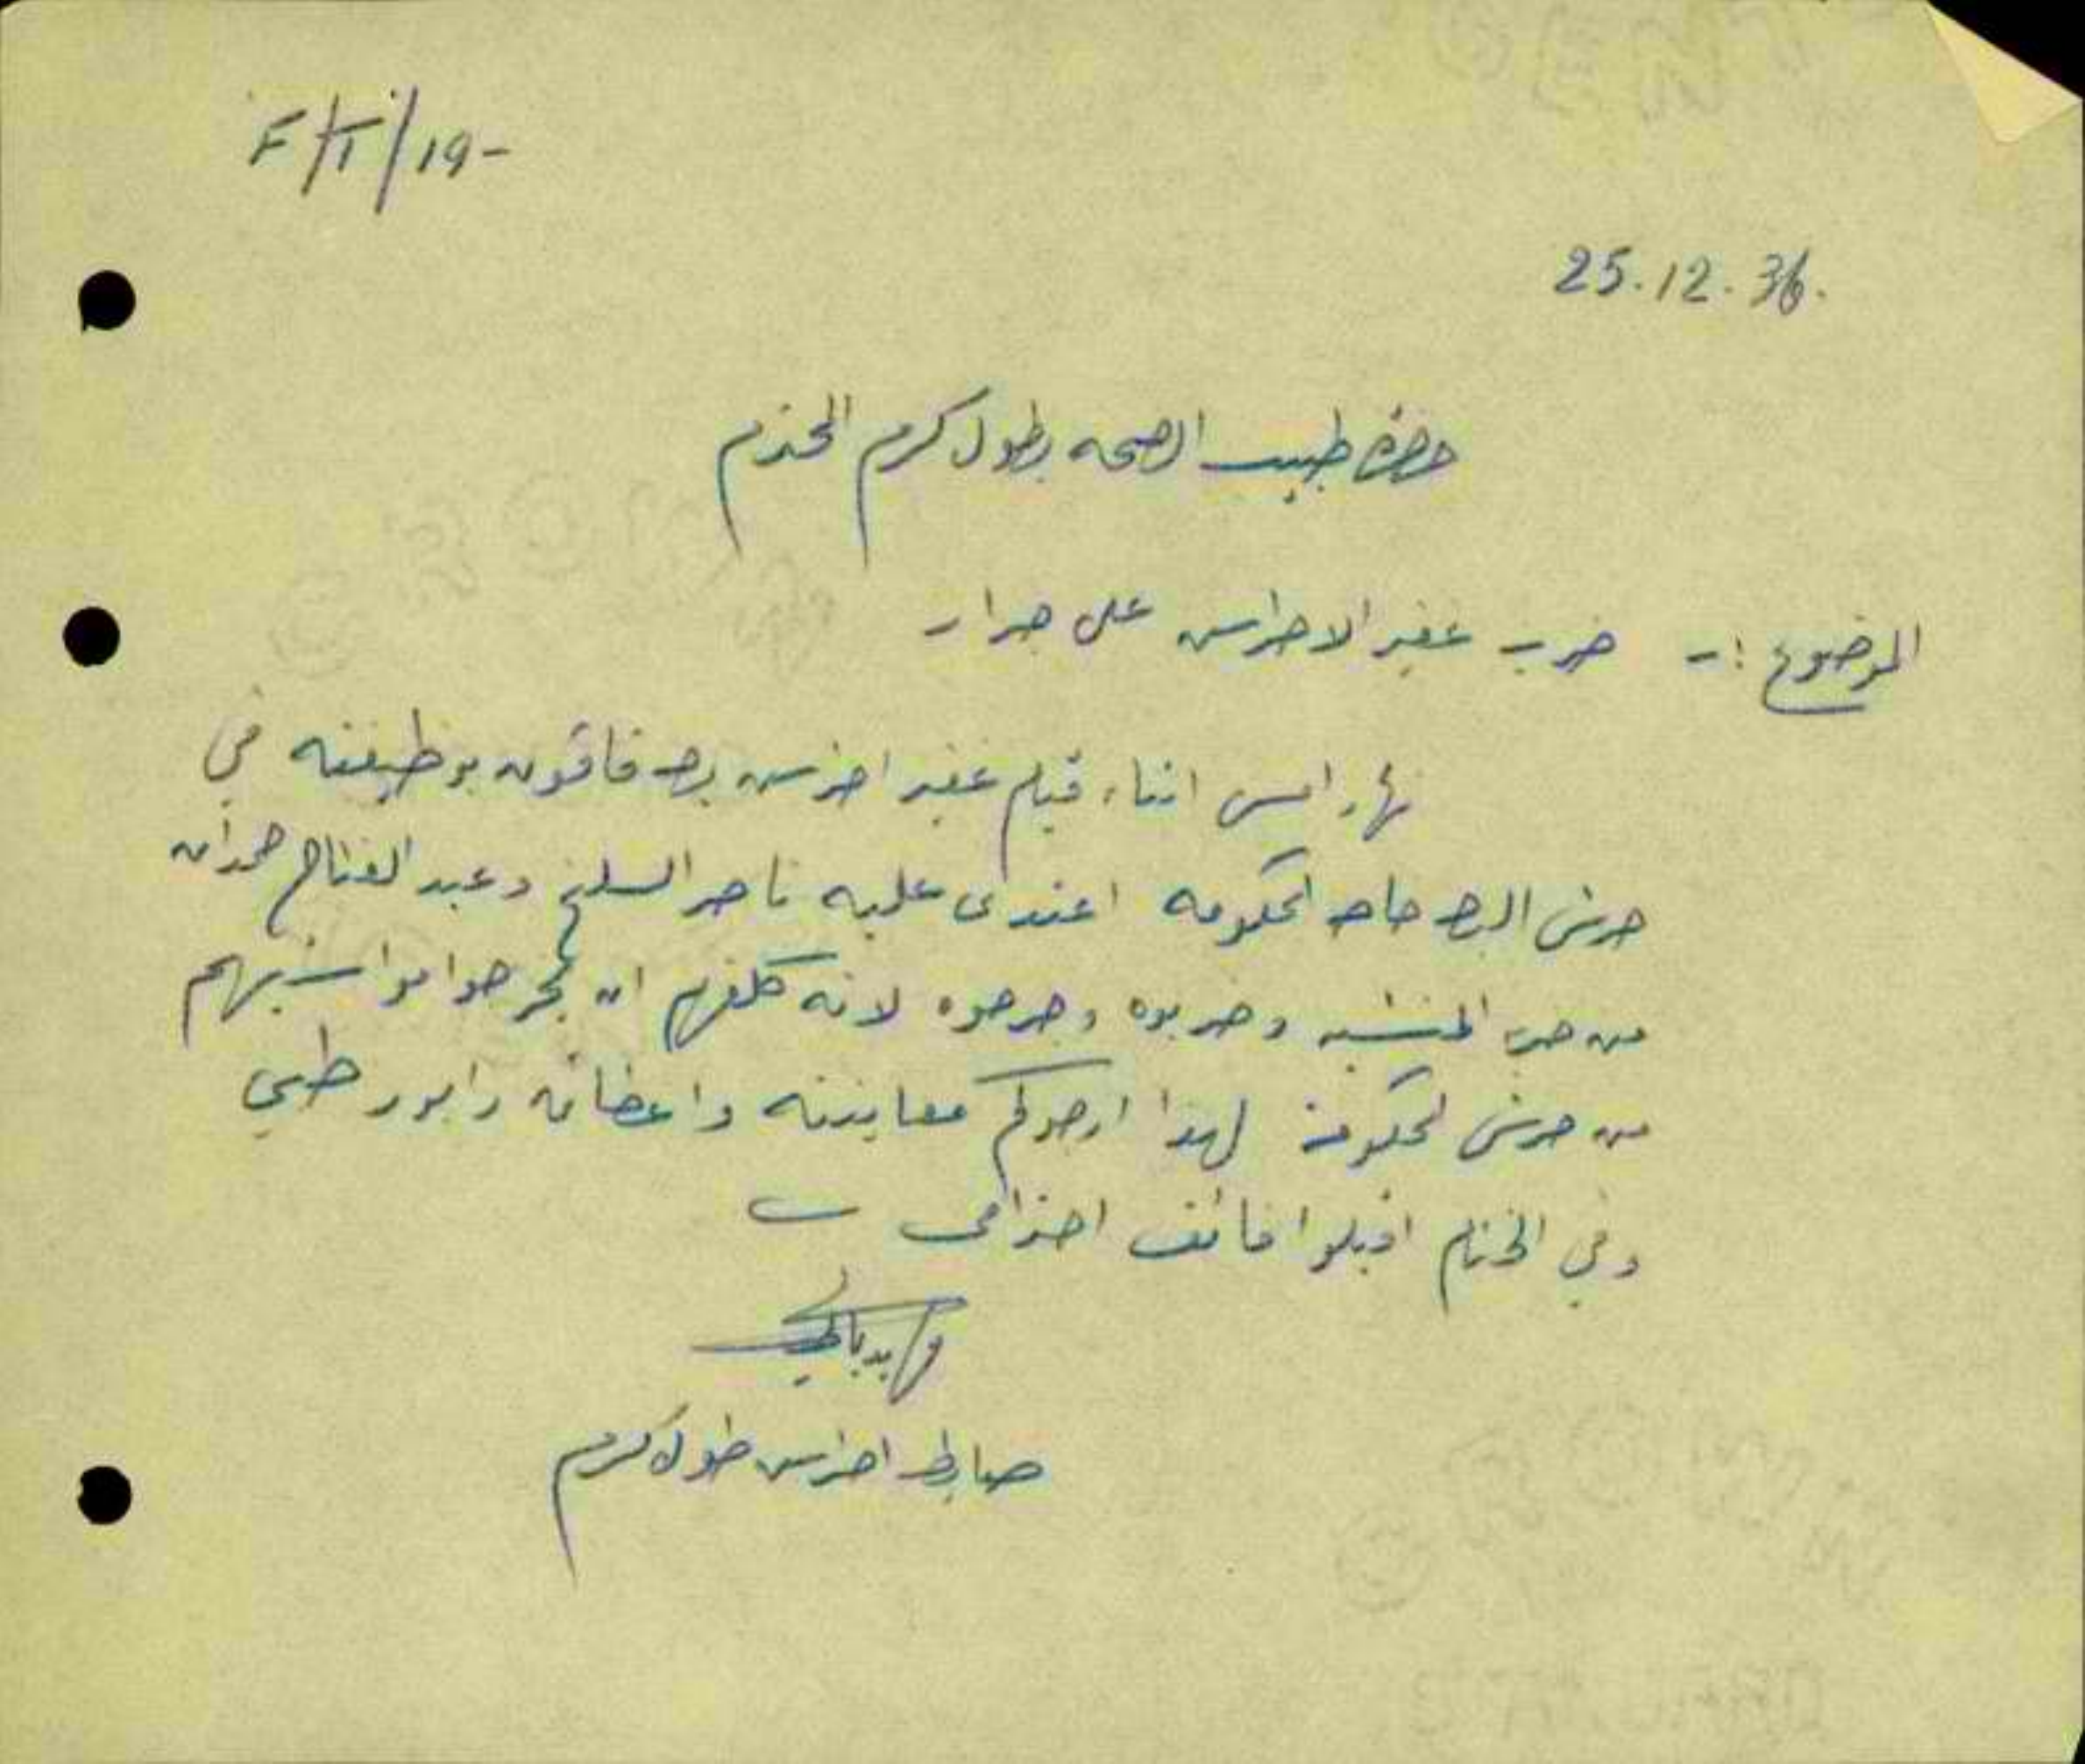 F/T/19-
25.12.36.
حضرة طبيب الصحه بطول كرم المحترم
الموضوع :- ضرب غفير الاحراش علي جرار
نهار امس اثناء قيام غفير احراش قاقون بوظيفته في
حرش الحكومه اعتدى عليه ناصر السلع وعبد الفتاح حمدان
من المنشيه وضربوه وجرحوه لانه كلفهم ان يخرجوا مواشيهم
من حرش الحكومة لهذا ارجوكم معاينته واعطائه رابور طبي
وفي الختام اقبلوا فائق احترامي
ضابط احراش طول كرم